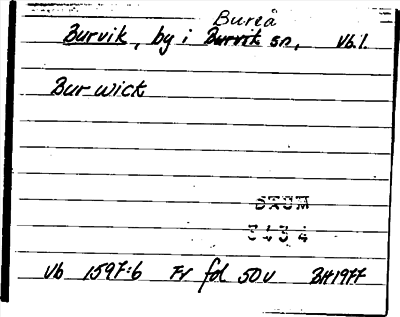 Bureå
Burvik, by i Burvik sn, Vb.l.
Burwick
Vb 1597:6 Fr fol 50 v BH 1977